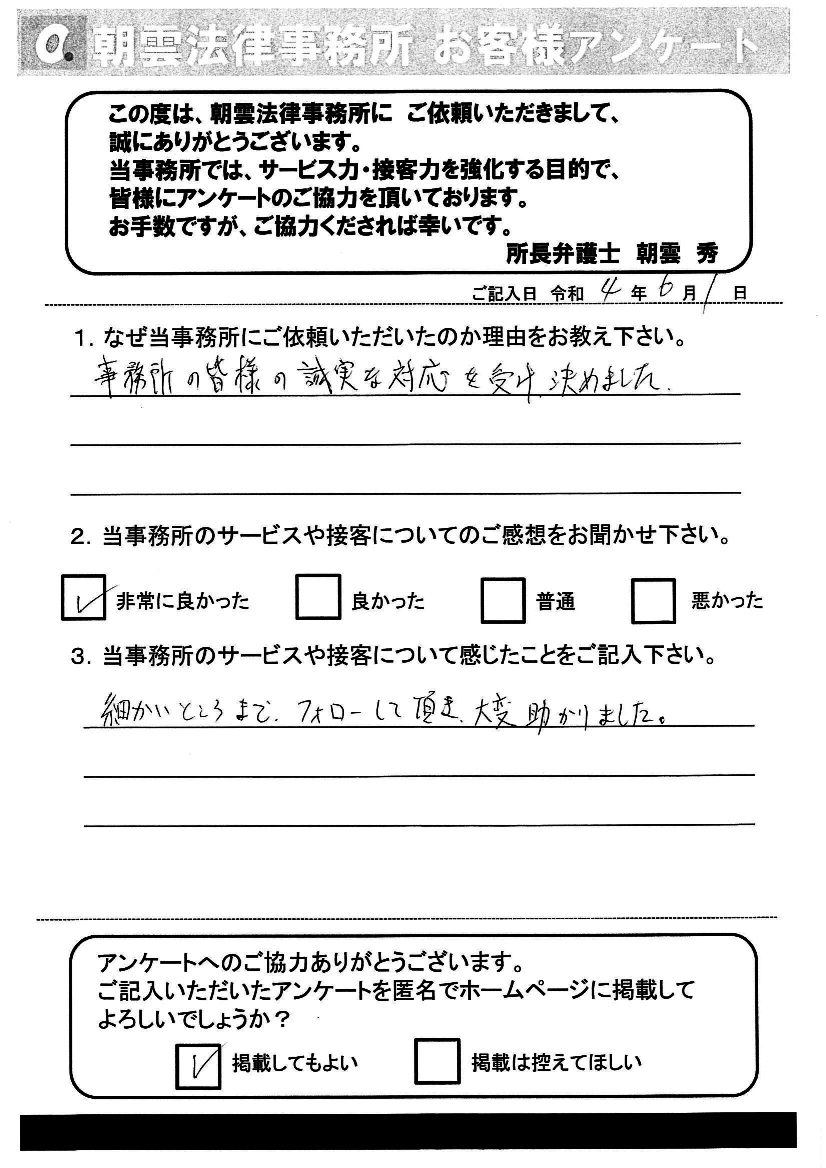 a. 朝雲法律事務所 お客様アンケート
この度は、朝雲法律事務所に ご依頼いただきまして、
誠にありがとうございます。
当事務所では、サービス力・接客力を強化する目的で、
皆様にアンケートのご協力を頂いております。
お手数ですが、ご協力くだされば幸いです。
所長弁護士 朝雲 秀
ご記入日 令和 4 年 6 月 1 日
1. なぜ当事務所にご依頼いただいたのか理由をお教え下さい。
事務所の皆様の誠実な対応を受け、決めました.
2. 当事務所のサービスや接客についてのご感想をお聞かせ下さい。
✓ 非常に良かった □ 良かった □ 普通 □ 悪かった
3. 当事務所のサービスや接客について感じたことをご記入下さい。
細かいところまで、フォローして頂き、大変助かりました。
アンケートへのご協力ありがとうございます。
ご記入いただいたアンケートを匿名でホームページに掲載して
よろしいでしょうか？
✓ 掲載してもよい □ 掲載は控えてほしい